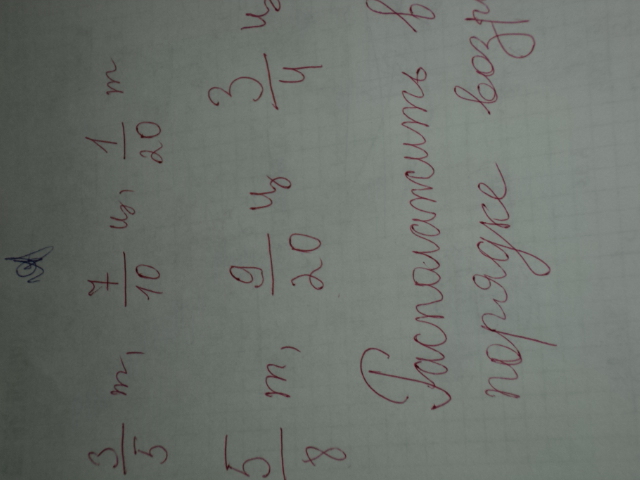 3/5 т, 7/10 ц, 1/20 т
5/8 т, 9/20 ц 3/4 ц
Располажить в
порядке возр